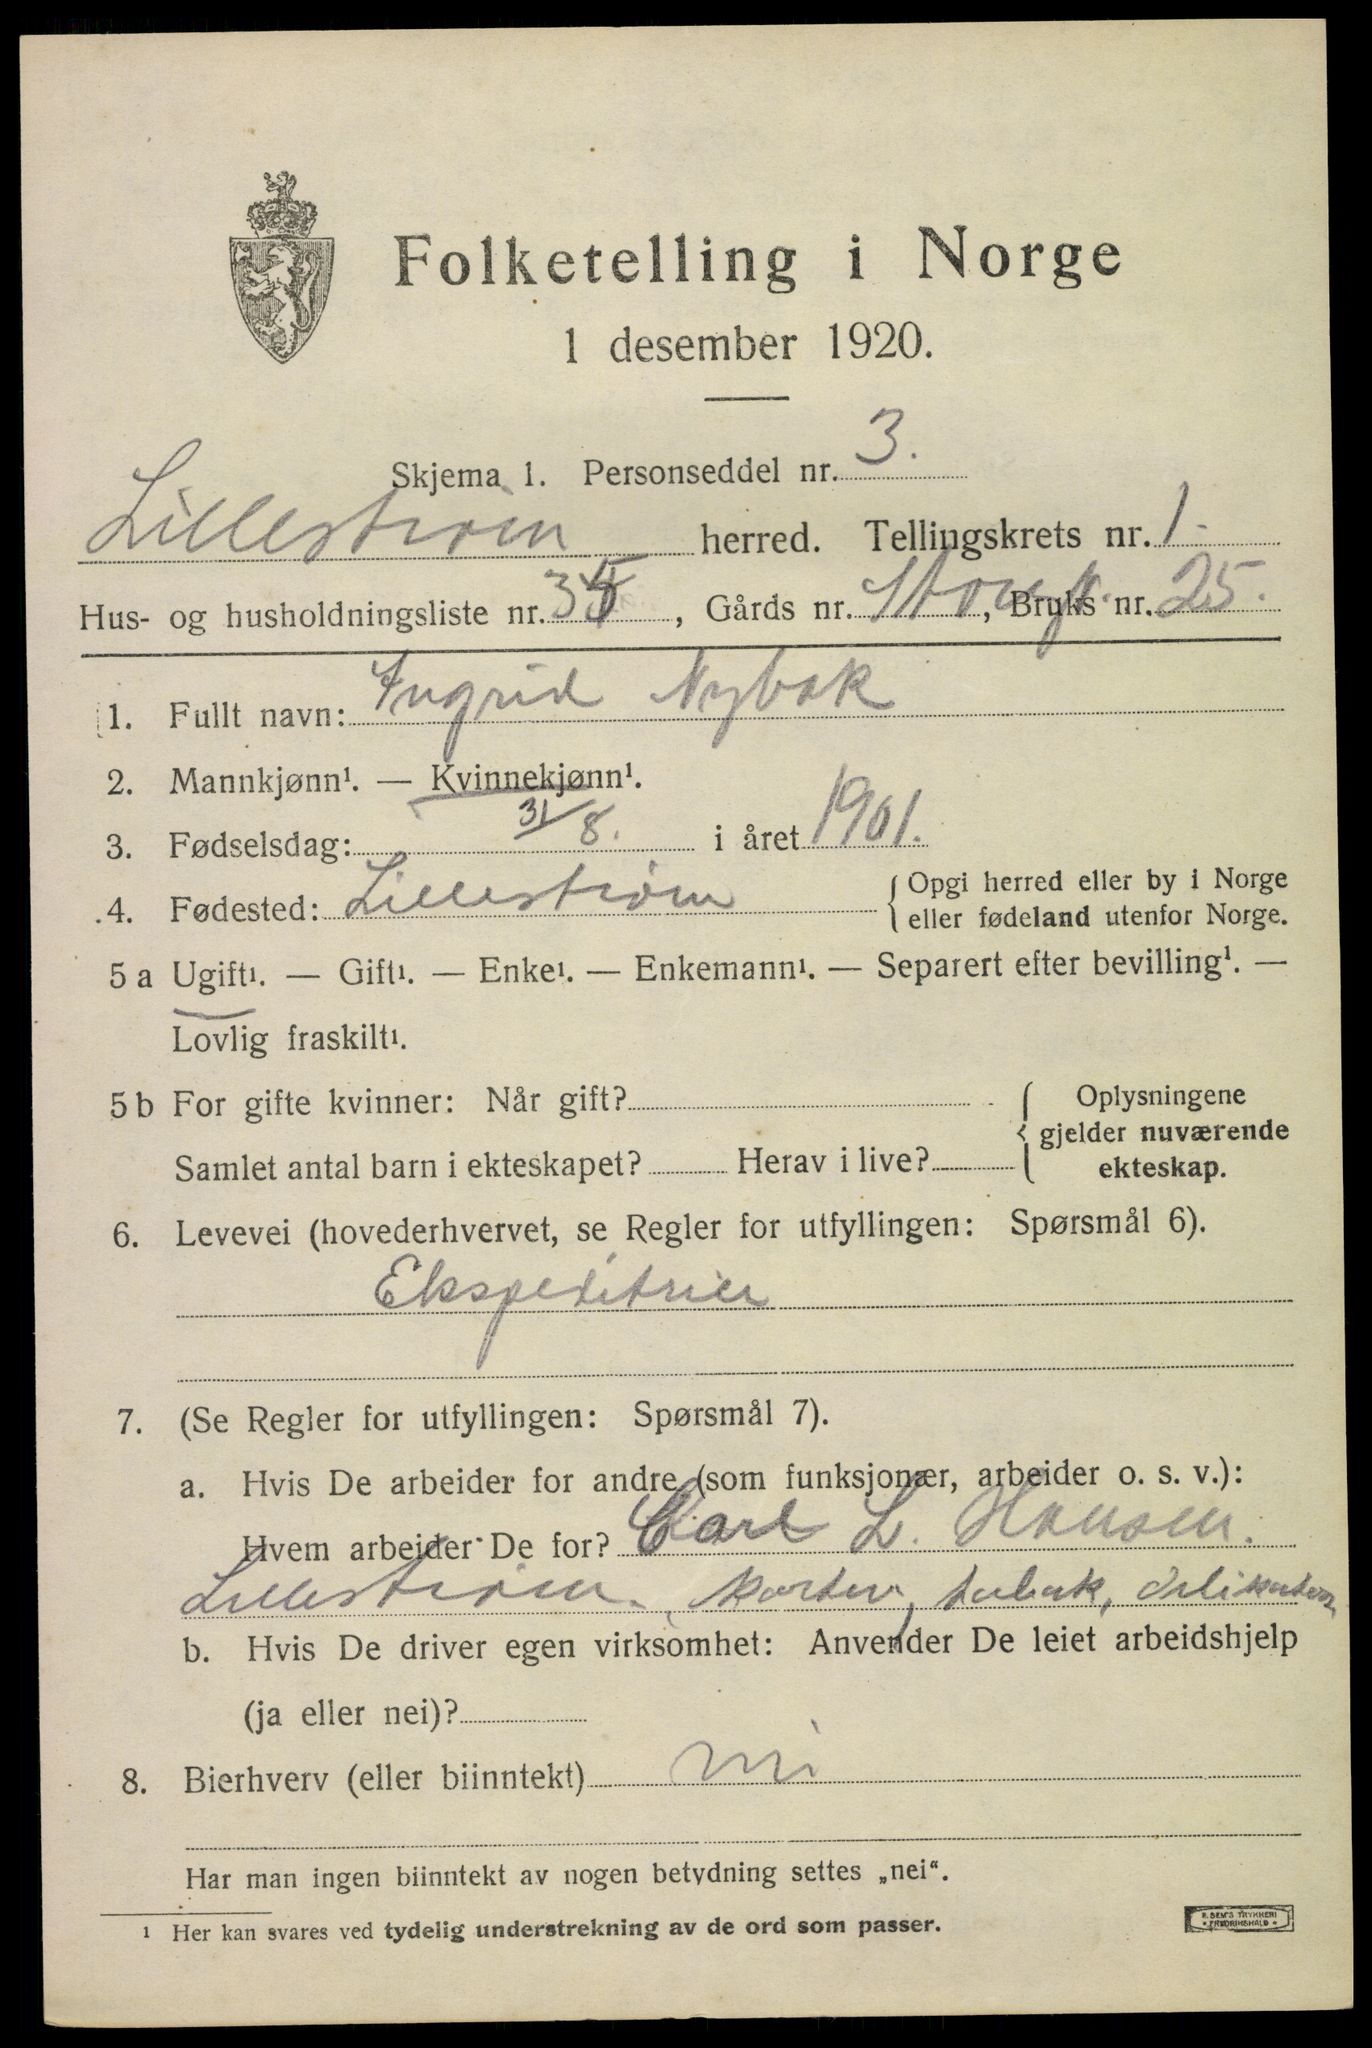 Folketelling i Norge
1 desember 1920.
Skjema 1. Personseddel nr. 3.
Lillestrøm herred. Tellingskrets nr. 1.
Hus- og husholdningsliste nr. 35, Gårds nr. Storgt., Bruks nr. 25.
1. Fullt navn: Ingrid Nybak
2. Mannkjønn¹. — Kvinnekjønn¹.
3. Fødselsdag: 31/8. i året 1901.
4. Fødested: Lillestrøm { Opgi herred eller by i Norge
eller fødeland utenfor Norge.
5 a Ugift¹. — Gift¹. — Enke¹. — Enkemann¹. — Separert efter bevilling¹. —
Lovlig fraskilt¹.
5 b For gifte kvinner: Når gift? { Oplysningene
gjelder nuværende
Samlet antal barn i ekteskapet? Herav i live? ekteskap.
6. Levevei (hovederhvervet, se Regler for utfyllingen: Spørsmål 6).
Ekspeditrice
7. (Se Regler for utfyllingen: Spørsmål 7).
a. Hvis De arbeider for andre (som funksjonær, arbeider o. s. v.):
Hvem arbeider De for? Carl L. Hansen.
Lillestrøm., tabak,
b. Hvis De driver egen virksomhet: Anvender De leiet arbeidshjelp
(ja eller nei)?
8. Bierhverv (eller biinntekt) nei
Har man ingen biinntekt av nogen betydning settes „nei“.
¹ Her kan svares ved tydelig understrekning av de ord som passer.
E. SEM'S TRYKKERI
* FREDRIKSHALD *